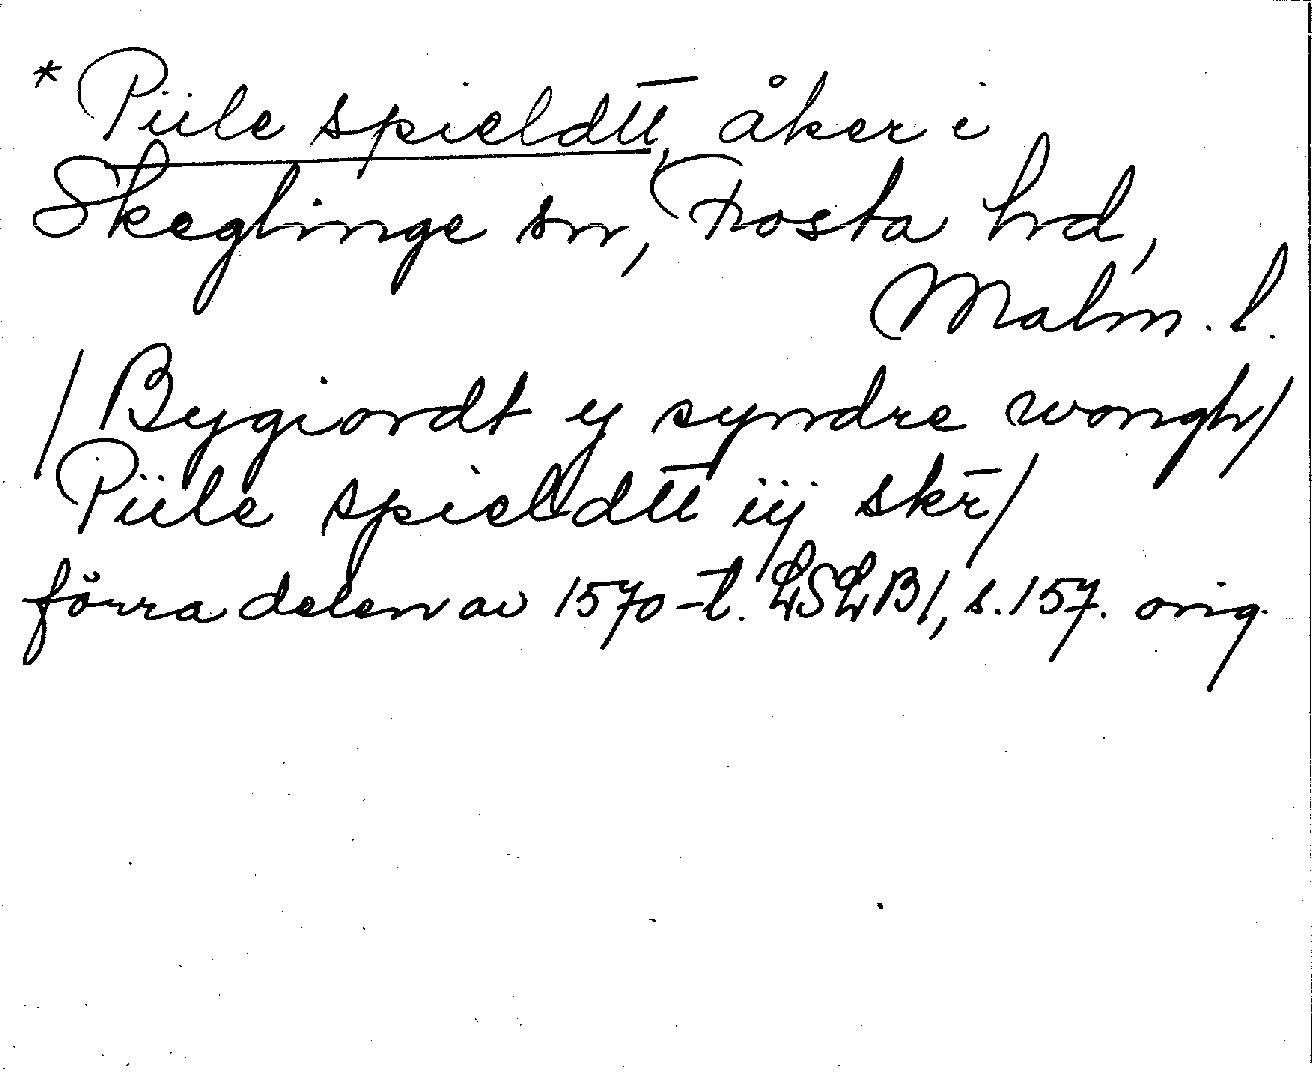 * Piile spieldtt̄, åker i
Skeglinge sn, Frosta hrd,
Malm. l.
/Bygiordt y syndre wongh/
Piile spieldtt̄ iij skr̄/
förra delen av 1570-t. LSLB1, s. 157. orig.